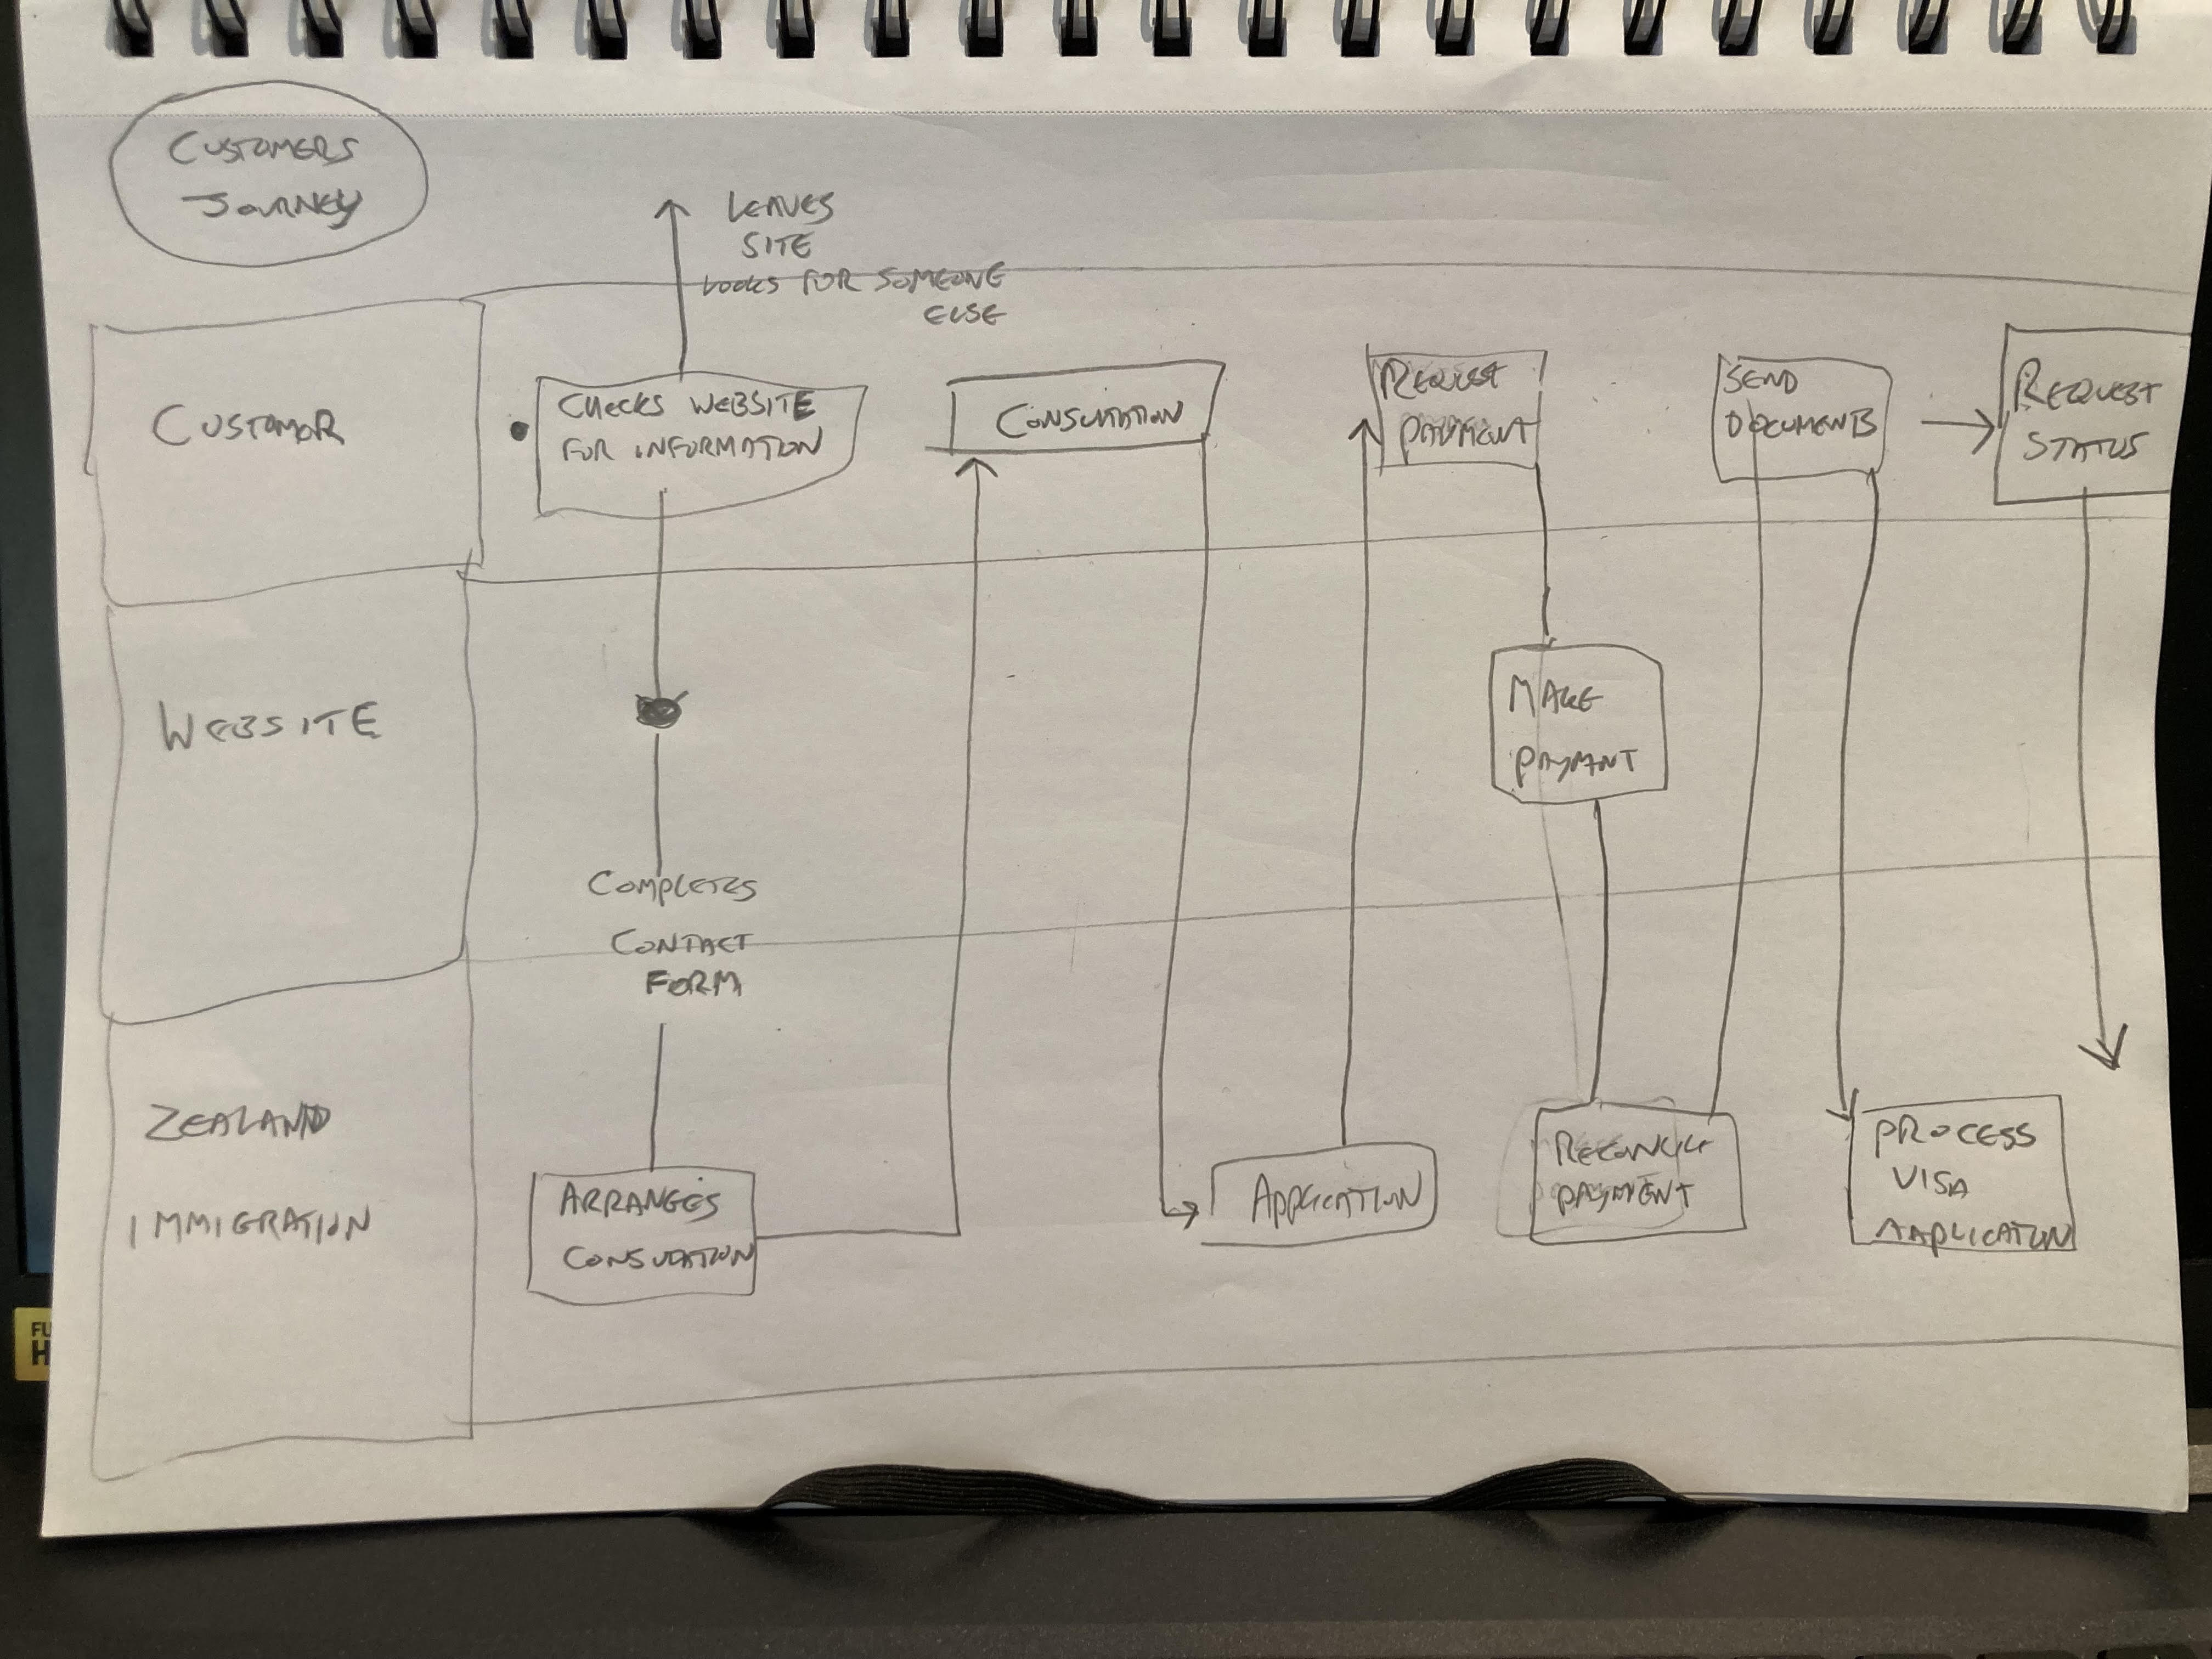 CUSTOMERS
JOURNEY
LEAVES
SITE
LOOKS FOR SOMEONE
ELSE
CUSTOMOR
CHECKS WEBSITE
FOR INFORMATION
CONSUTATION
REQUEST
PAYMENT
SEND
DOCUMENTS
REQUEST
STATUS
WEBSITE
MAKE
PAYMANT
COMPLETES
CONTACT
FORM
ZEALAND
IMMIGRATION
ARRANGES
CONSUTATION
APPLICATION
RECONCILE
PAYMENT
PROCESS
VISA
APPLICATION
FU
H